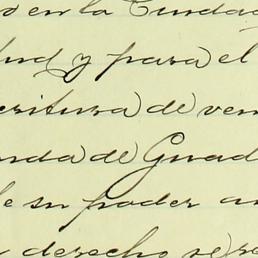 en la Ciudad
y para el
critura de ven
nda de Guad
de su poder
derecho se re